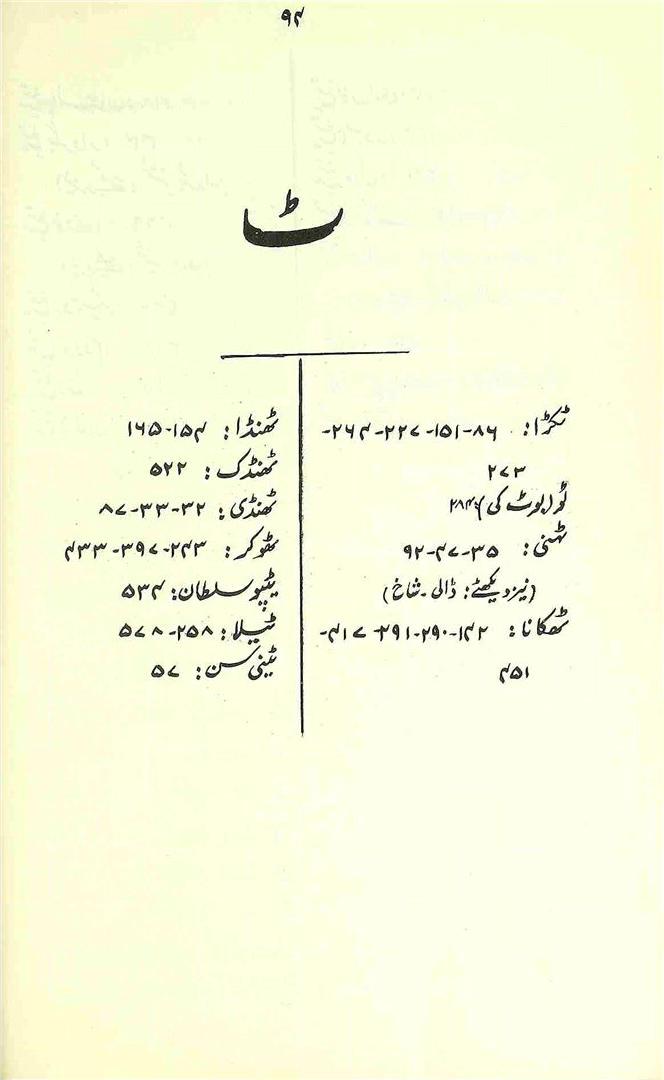 ۹۴
ٹ
ٹکڑا: ۸۶-۱۵۱-۲۲۷-۲۶۴-
۲۷۳
ٹو (بوٹ کی) ۲۸۴
ٹہنی: ۳۵-۴۷-۹۲
(نیز دیکھئے: ڈالی۔شاخ)
ٹھکانا: ۱۴۲-۲۹۰-۲۹۱-۴۱۷-
۴۵۱
ٹھنڈا: ۱۵۴-۱۶۵
ٹھنڈک: ۵۲۲
ٹھنڈی: ۳۲-۳۳-۸۷
ٹھوکر: ۲۴۳-۳۹۷-۴۳۳
ٹیپو سلطان: ۵۳۴
ٹیلا: ۲۵۸-۵۷۸
ٹینی سن: ۵۷